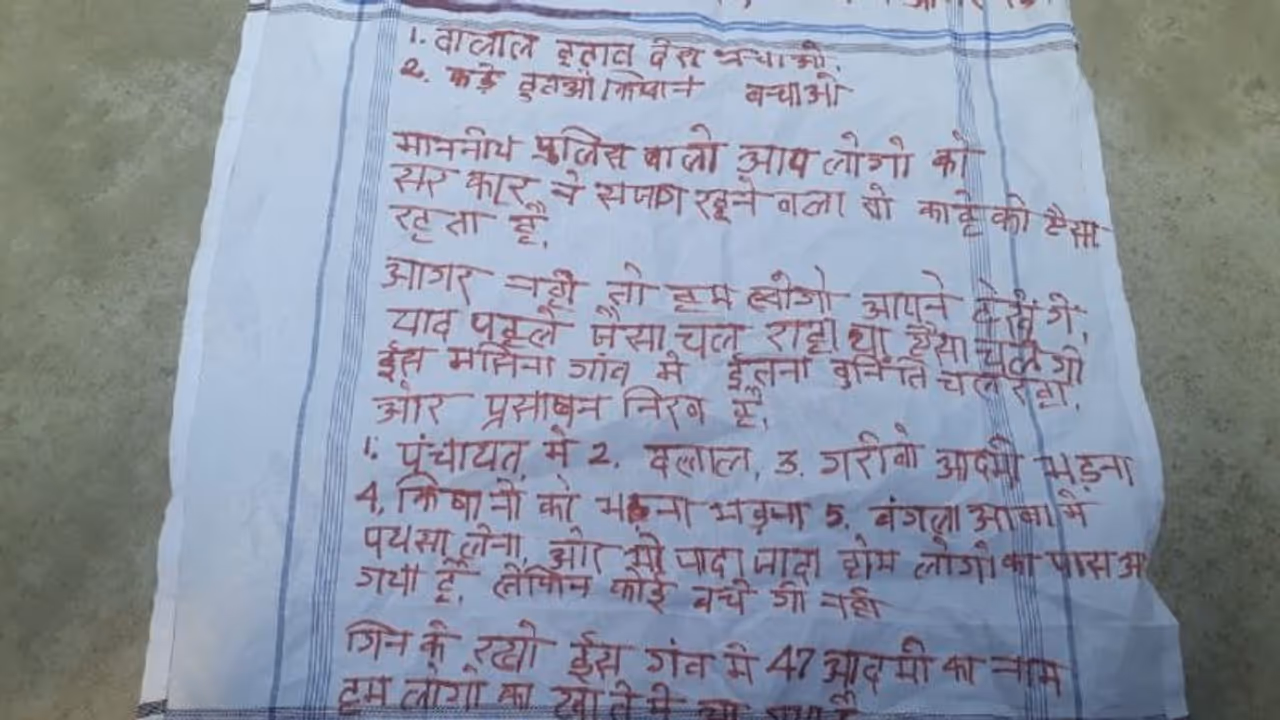 1. दालाल हताव देश बचाओ.
2. कड़े हुतओ किषान बचाओ
माननीय पुलिस वालो आप लोगो को
सर कार ने सजाग रहने वला वो काहे को हैसा
रहता है.
आगर नही तो हम लोगो आपने देखेंगे,
याद पहले जैसा चल राहा था हैसा चलेगी
ईस मसिना गांव मे ईतना दुर्निति चल रहा,
ओर प्रसाषन निरव है.
1. पंचायत मे 2. दलाल, 3. गरीबो आदमी भड़ना
4, किषानो को भड़ना भड़ना 5. बंगला आबा मे
पयसा लेना, ओर भो जादा जादा होम लोगो का पास आ
गया है, लेकिन कोई बचे गी नही
गिन के रखो ईस गंव मे 47 आदमी का नाम
हम लोगो का खाते मे आ गया है